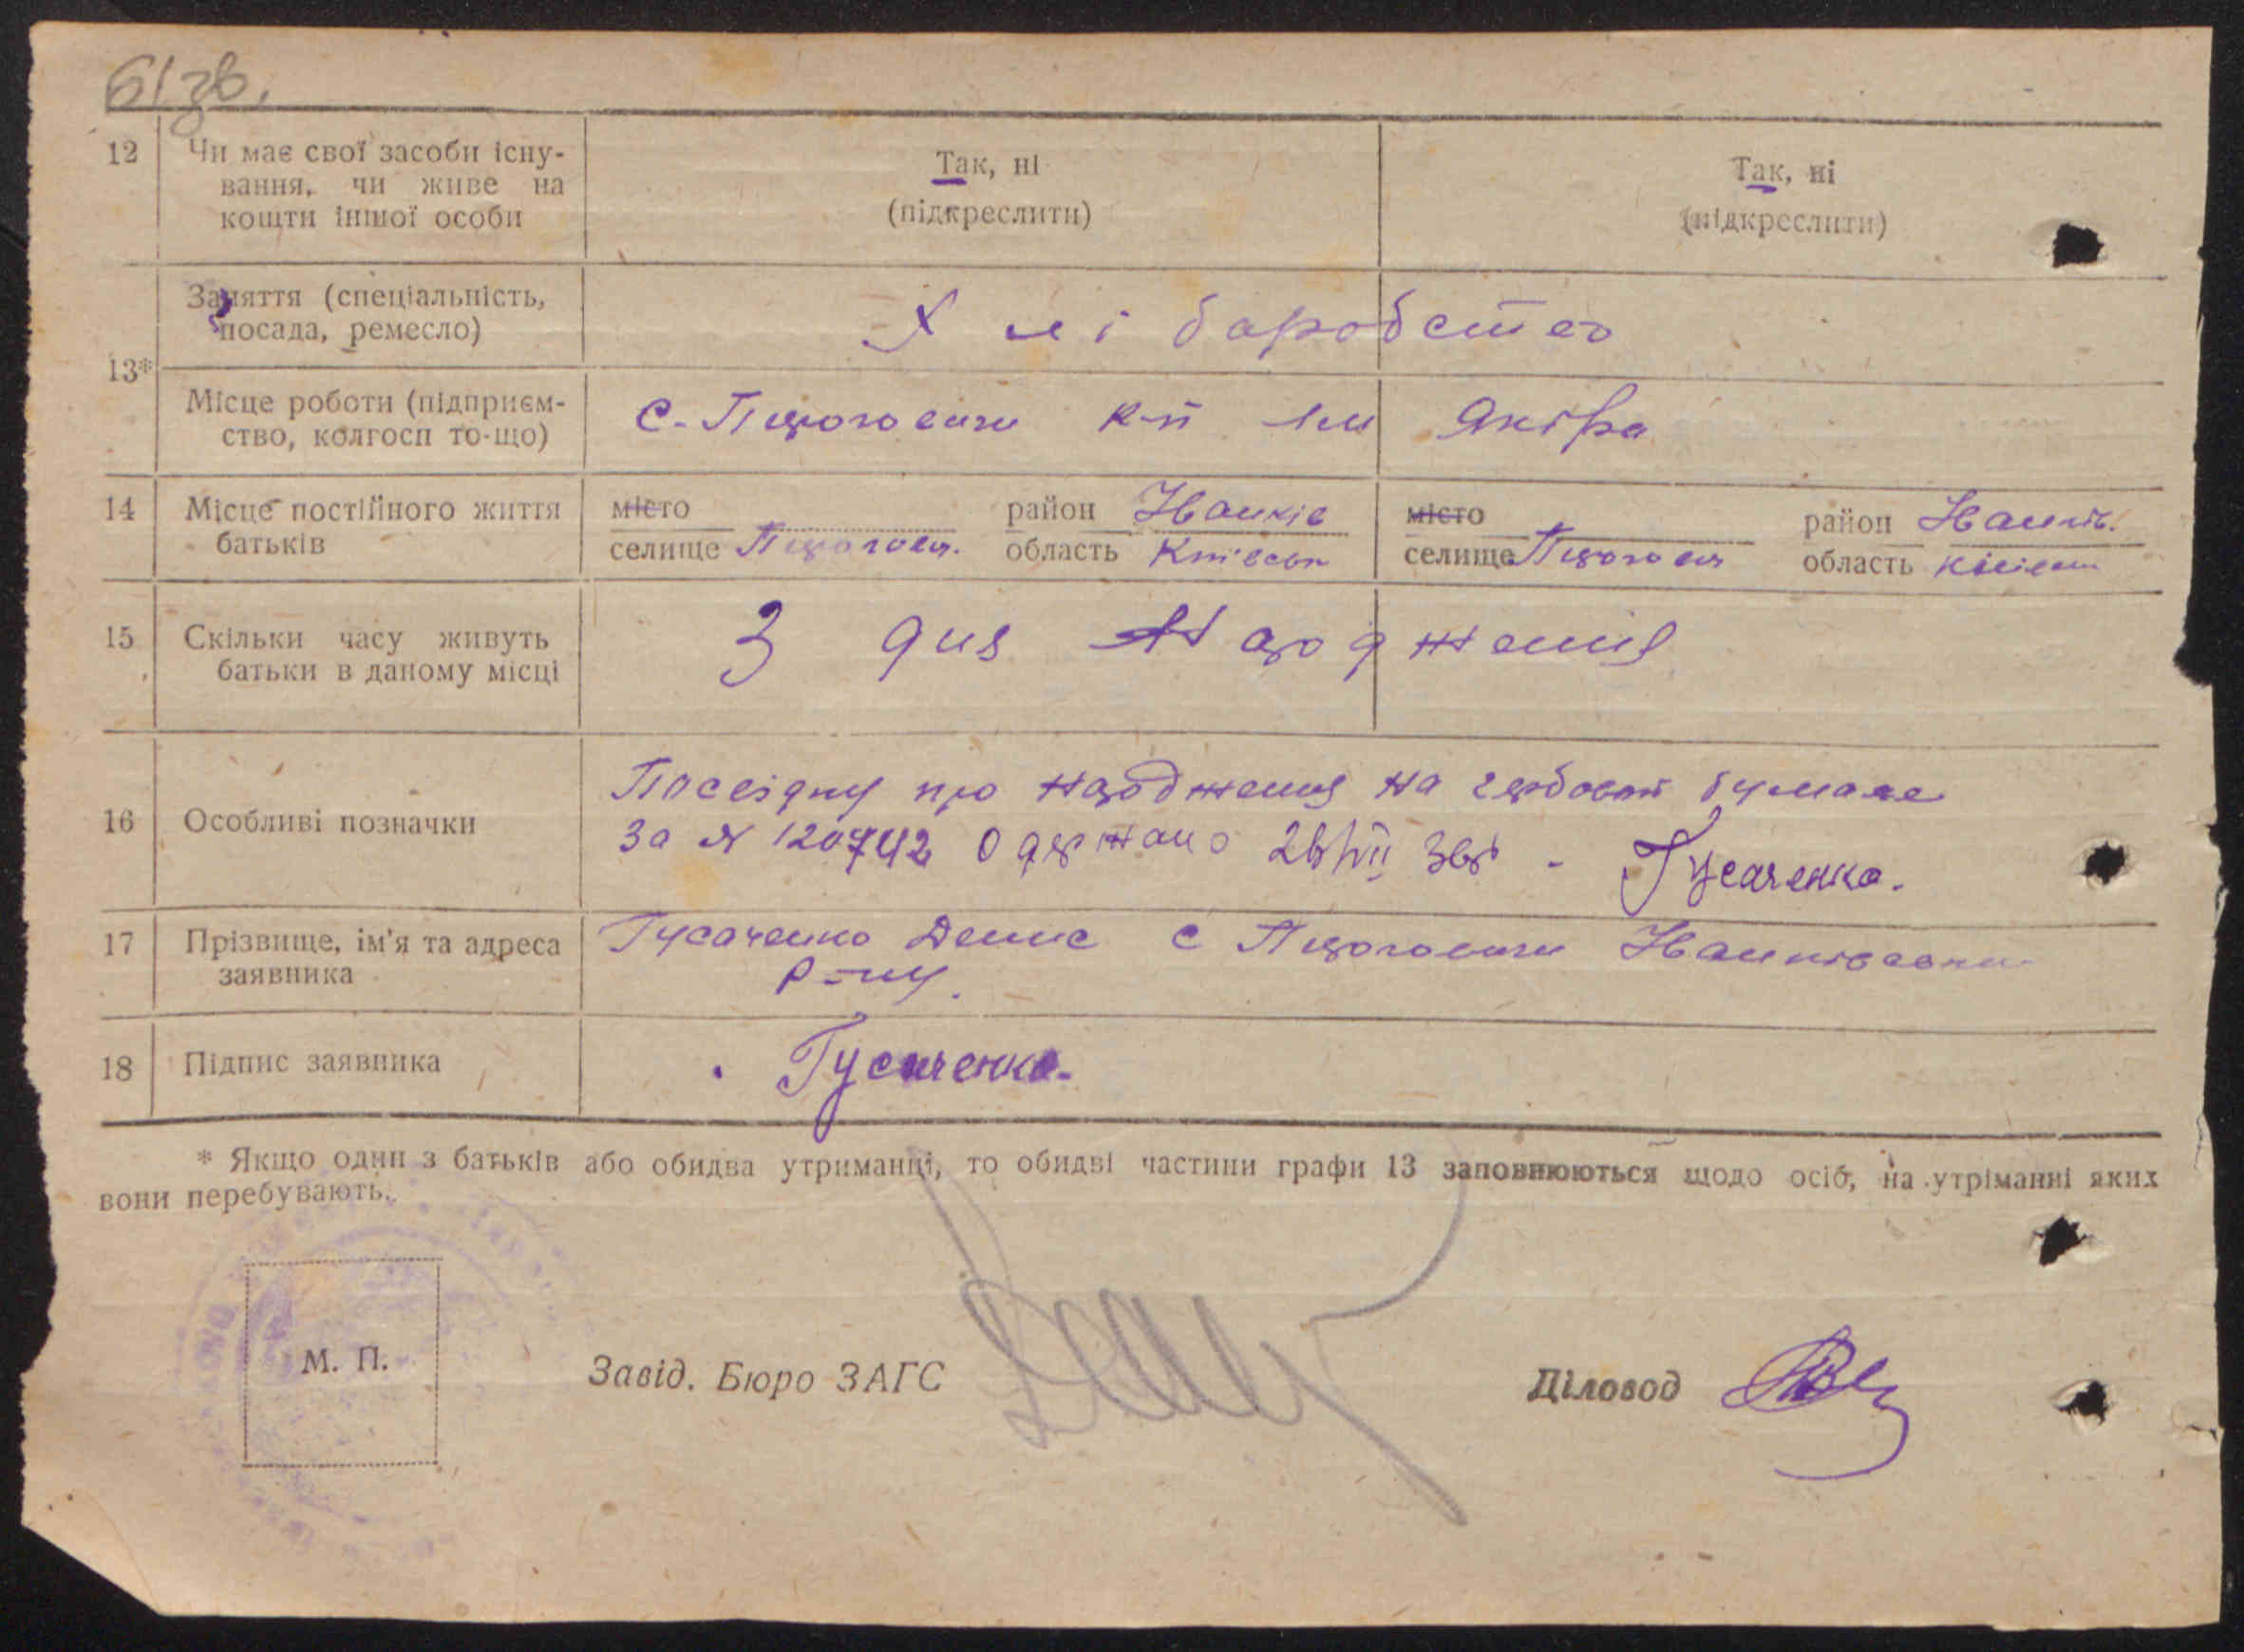 61 зв.
12 Чи має свої засоби існу-
вання, чи живе на
кошти іншої особи
Так, ні
(підкреслити)
Так, ні
(підкреслити)
13*
Заняття (спеціальність,
посада, ремесло)
Хліборобство
Місце роботи (підприєм-
ство, колгосп то-що)
С. Пироговичи к-п їм Якіра
14 Місце постійного життя
батьків
місто
селище Пирогович.
район Іванків
область Київськ
місто
селище Пирогович
район Іванків.
область Київськ
15 Скільки часу живуть
батьки в даному місці
З дня народження
16 Особливі позначки
Посвідку про народження на гербовой бумаге
За № 120742 Одержано 36р - Гусаченко.
17 Прізвище, ім'я та адреса
заявника
Гусаченко Денис с Пироговичи Іванківськи
р-ну.
18 Підпис заявника
Гусаченко.
* Якщо один з батьків або обидва утриманці, то обидві частини графи 13 заповнюються щодо осіб, на утріманні яких
вони перебувають.
М. П.
Завід. Бюро ЗАГС
Діловод